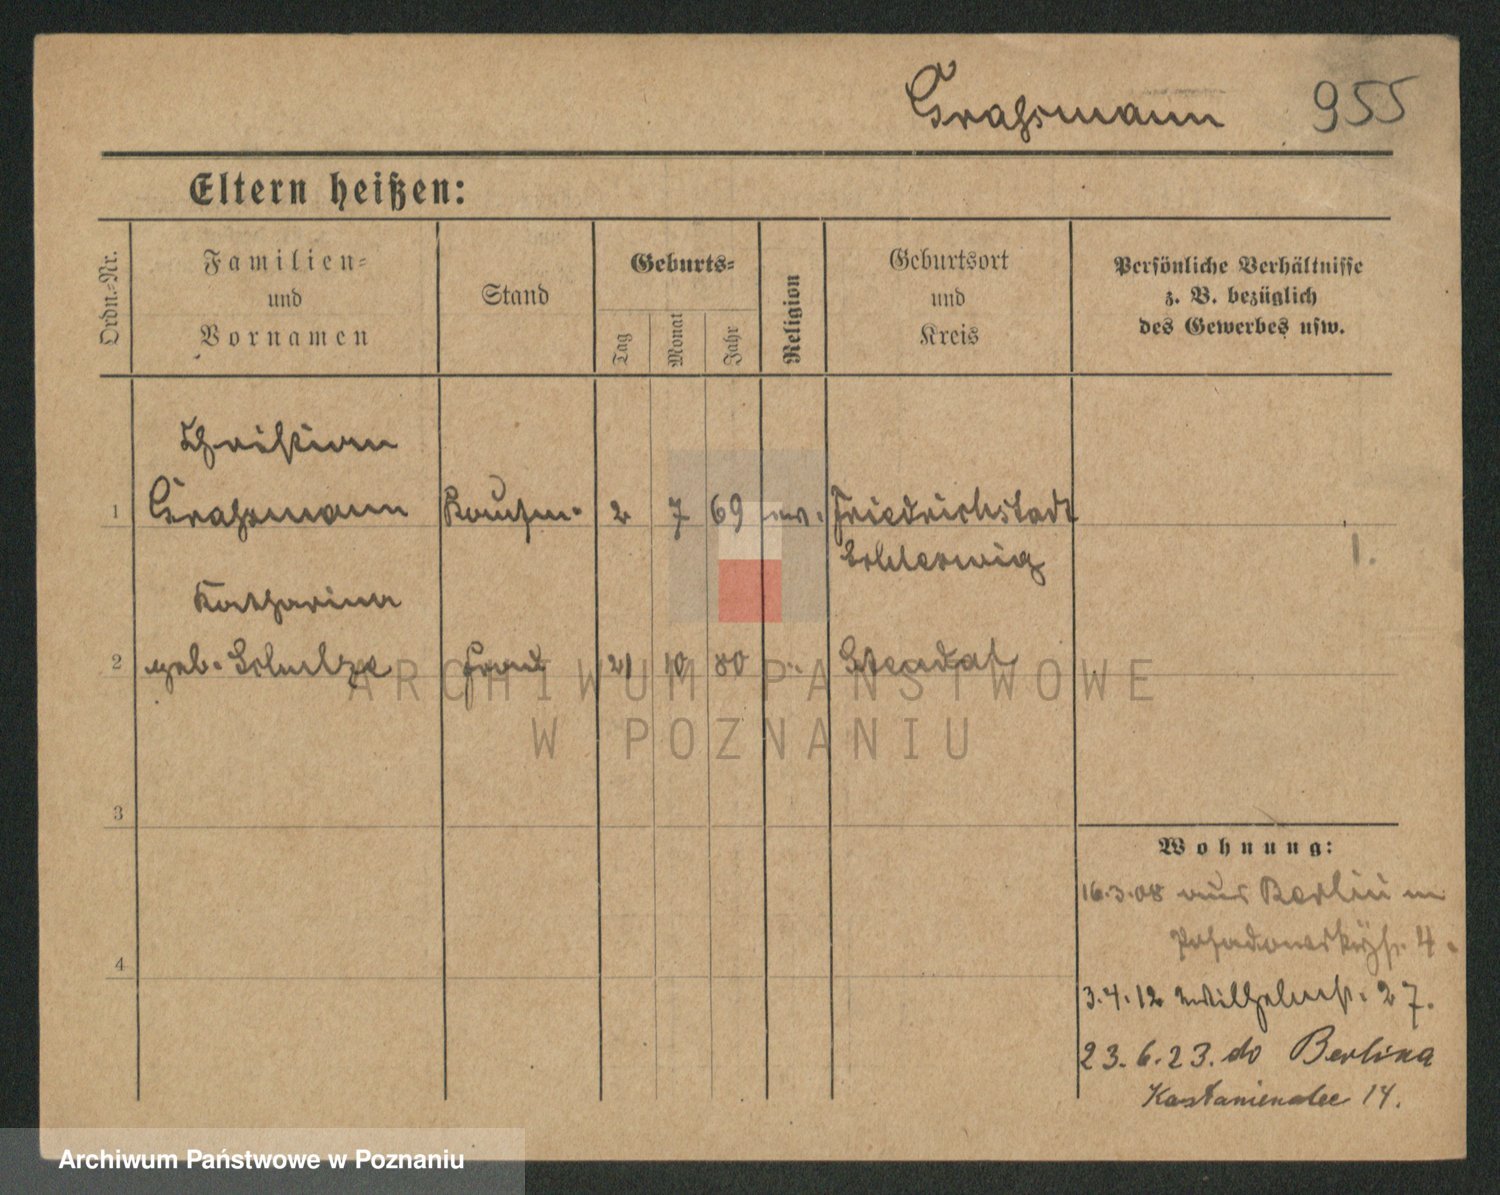 Grahsmann 955
Eltern heißen:
Ordn.-Nr.
Familien-
und
Vornamen
Stand
Geburts-
Tag
Monat
Jahr
Religion
Geburtsort
und
Kreis
Persönliche Verhältnisse
z. B. bezüglich
des Gewerbes usw.
Christian
1 Grahsmann Kaufm. 2 7 69 ev. Friedrichstadt
Schleswig
1.
Katharina
2 geb. Schulze Frau 21 10 80 " Stendal
ARCHIWUM PAŃSTWOWE
W POZNANIU
3
Wohnung:
16.3.08 aus Berlin n
Posadowskystr. 4.
4
3.4.12 Wilhelmst. 27.
23.6.23. do Berlina
Kastanienalee 14.
Archiwum Państwowe w Poznaniu